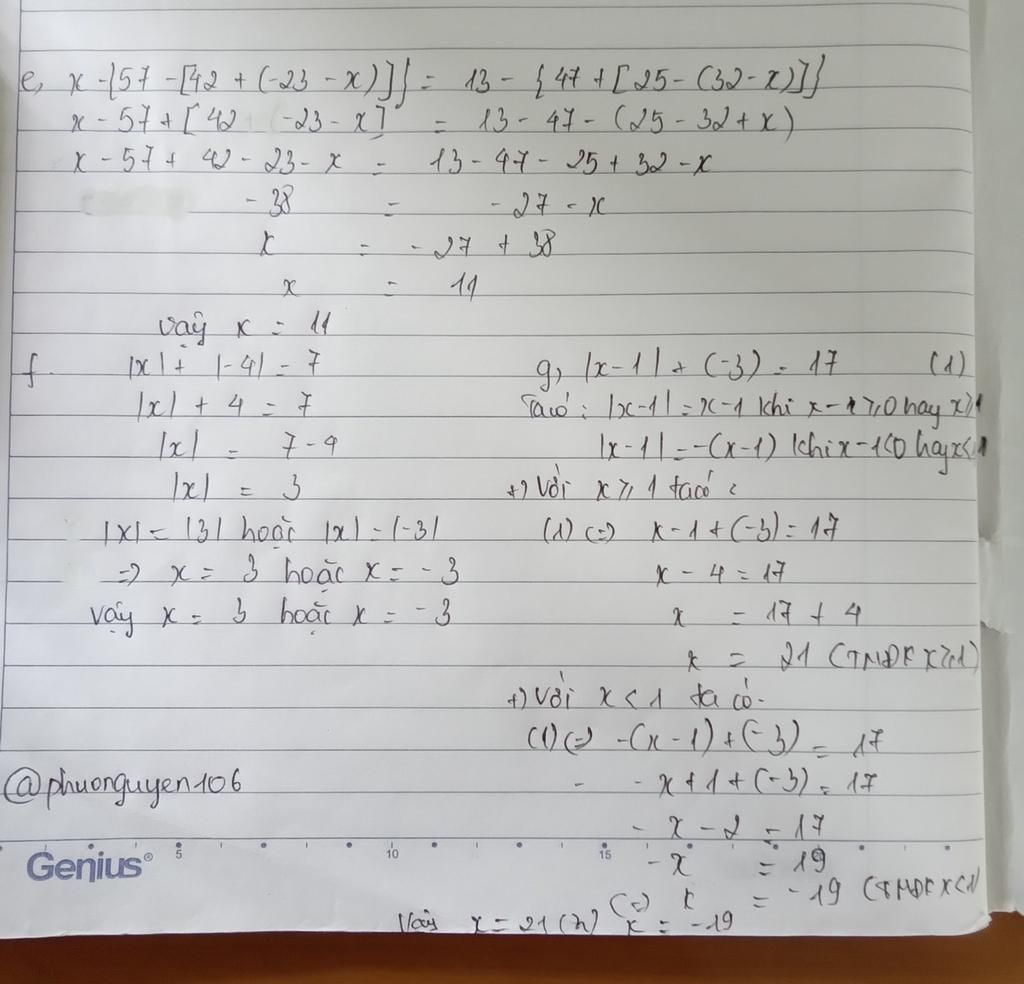 e, x - {57 - [42 + (-23 - x)]} = 13 - {47 + [25 - (32 - x)]}
x - 57 + [42 -23 - x] = 13 - 47 - (25 - 32 + x)
x - 57 + 42 - 23 - x = 13 - 47 - 25 + 32 - x
- 38 = - 27 - x
x = - 27 + 38
x = 11
vậy x = 11
f. |x| + |-4| = 7
|x| + 4 = 7
|x| = 7 - 4
|x| = 3
|x| = |3| hoặc |x| = |-3|
=> x = 3 hoặc x = - 3
vậy x = 3 hoặc x = - 3
g, |x - 1| + (-3) = 17 (1)
Ta có : |x-1| = x-1 khi x - 1 ⩾ 0 hay x ⩾ 1
|x-1| = -(x-1) khi x-1<0 hay x<1
+) Với x ⩾ 1 ta có :
(1) (=) x - 1 + (-3) = 17
x - 4 = 17
x = 17 + 4
x = 21 (TMĐK x⩾1)
+) Với x < 1 ta có.
(1) (=) -(x - 1) + (-3) = 17
- - x + 1 + (-3) = 17
- x - 2 = 17
- x = 19
(=) x = -19 (TMĐK x<1)
Vậy x = 21 (n) x = -19
@phuonguyen106
Genius® 5 10 15